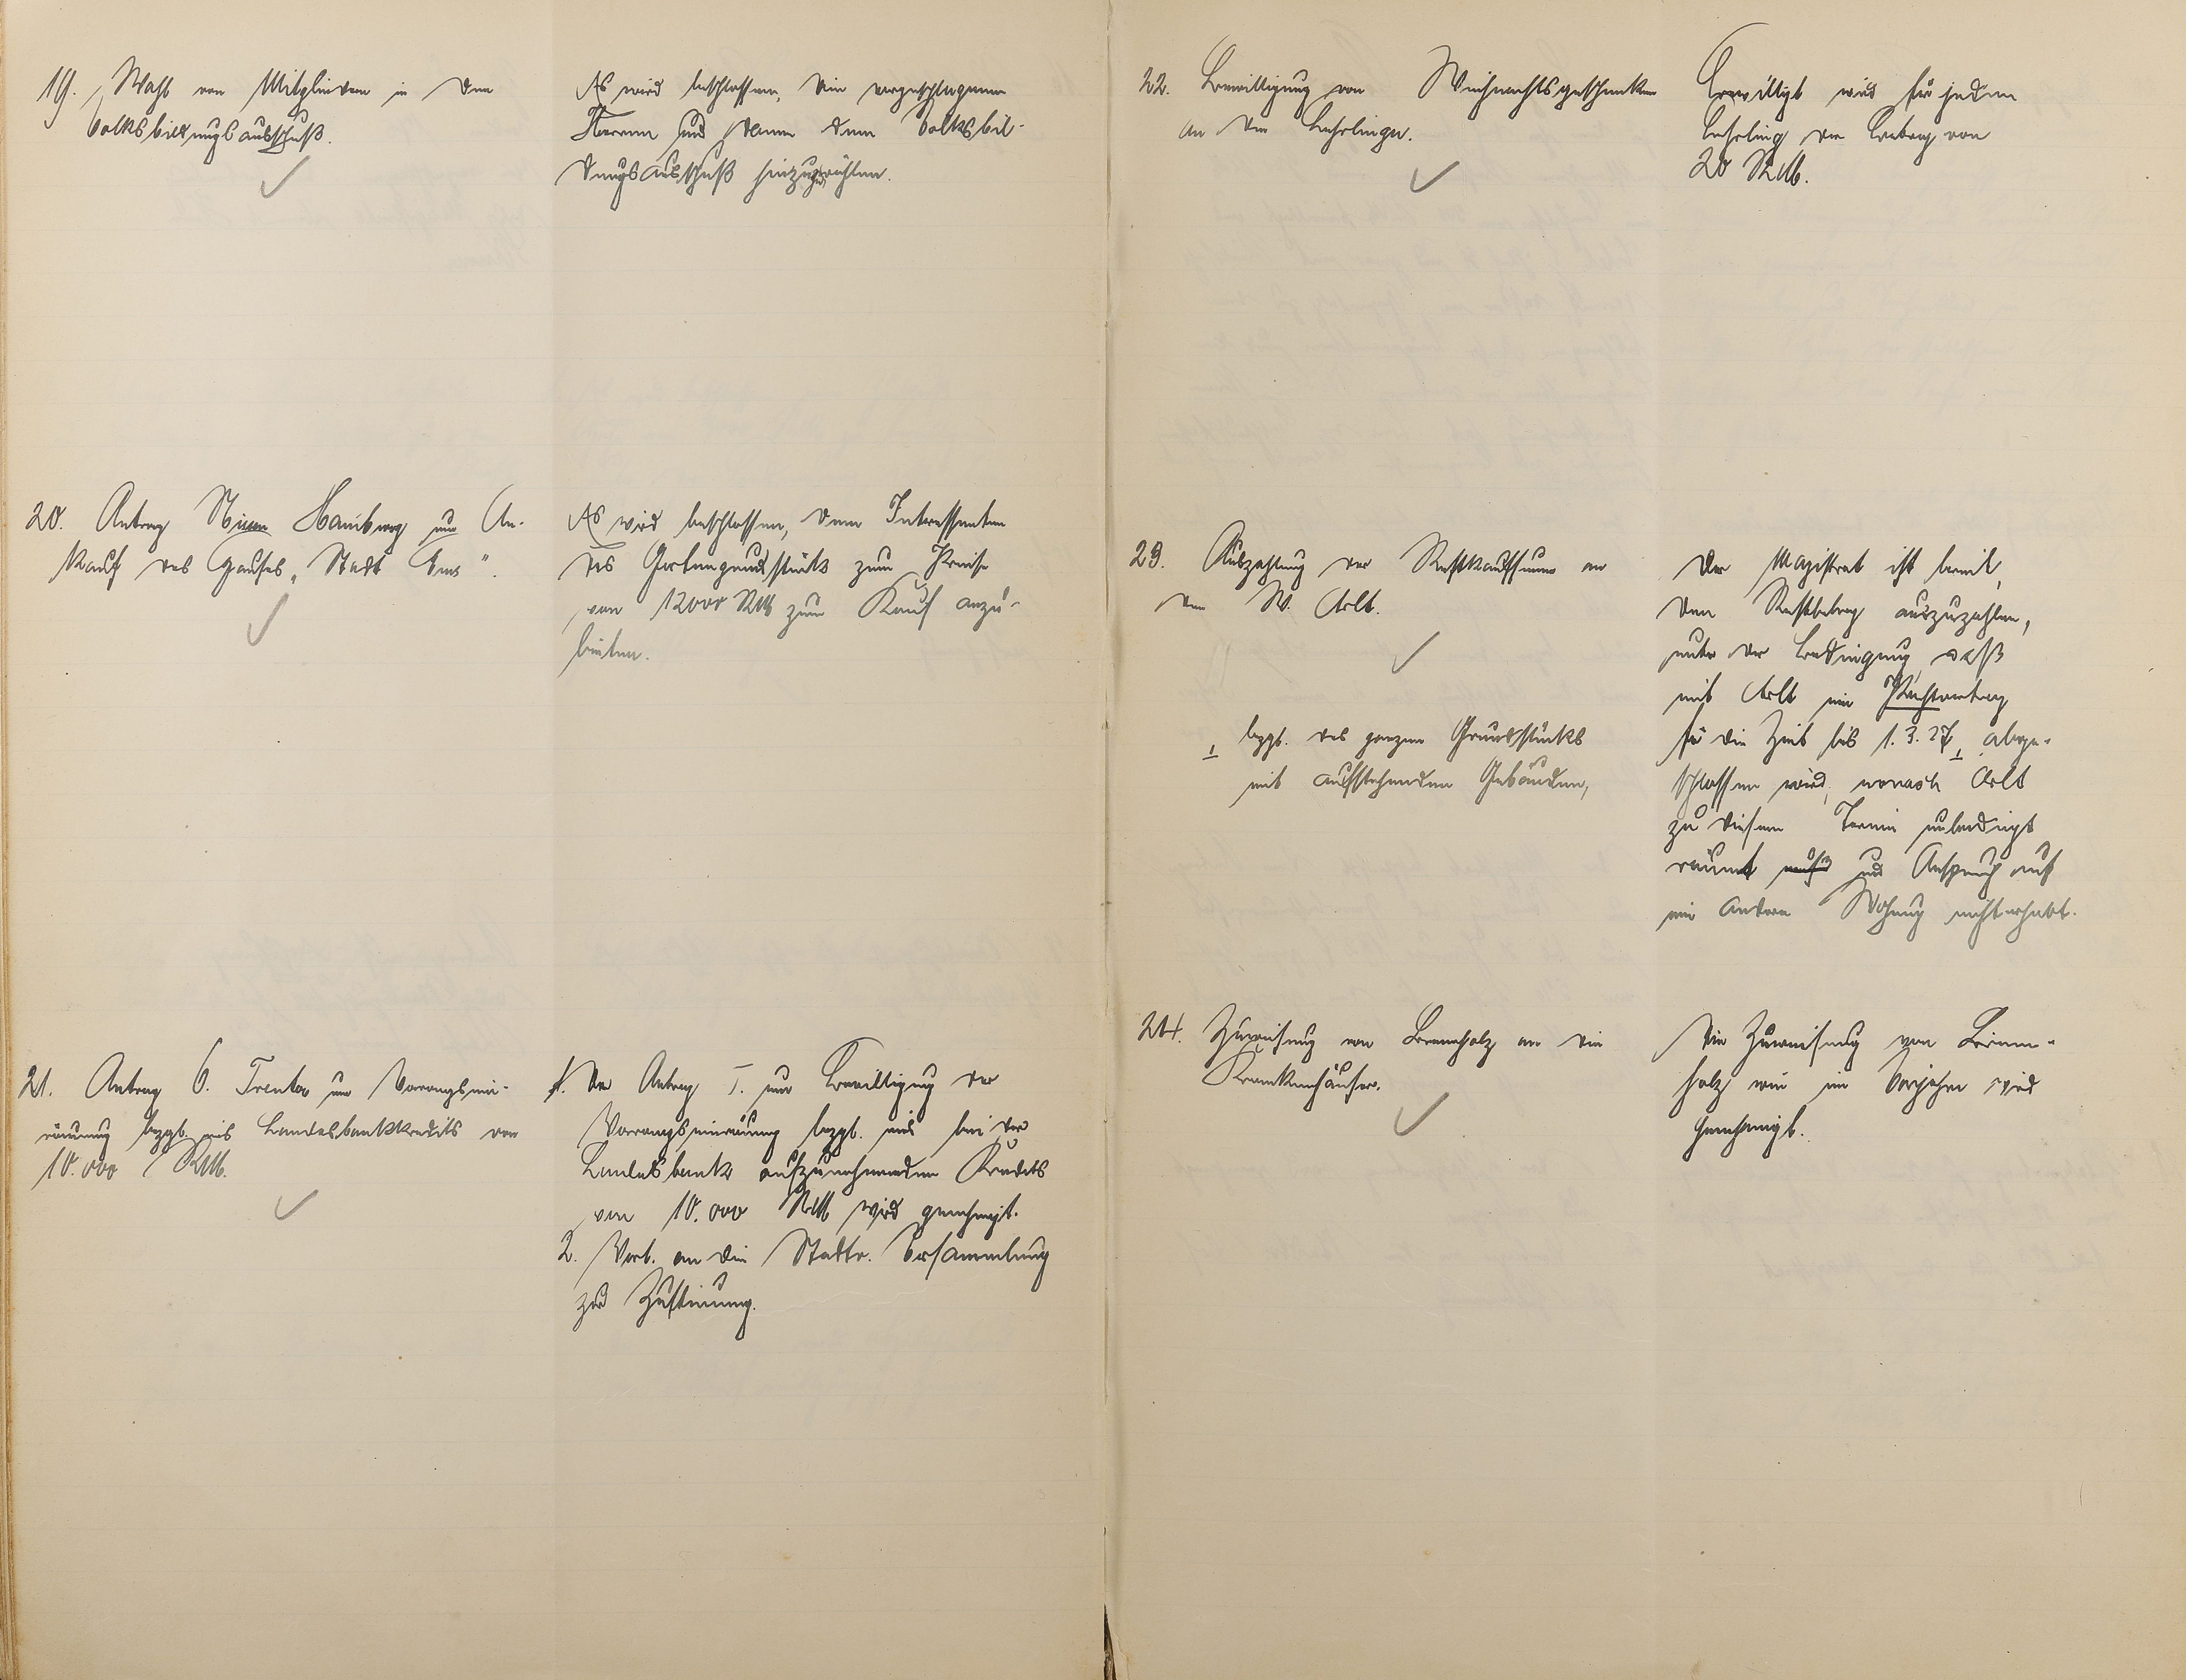 19. Wahl von Mitgliedern in den
Volksbildungsausschuß.
Es wird beschlossen, die vorgeschlagenen
Herren und Damen dem Volksbil-
dungsausschuß hinzuzuwählen.
20. Antrag Hamburg um An-
kauf des Hauses „Stadt Ems".
Es wird beschlossen, dem Interessenten
das Gartengrundstück zum Preise
von 12000 RM zum Kauf anzu-
bieten.
21. Antrag C. Trenter um Vorrangsein-
räumung bezgl. eines Landesbankkredits von
10.000 RM.
1. Der Antrag T. um Bewilligung der
Vorrangseinräumung bezgl. eines bei der
Landesbank aufzunehmenden Kredits
von 10.000 RM wird genehmigt.
2. Vorl. an die Stadtv. Versammlung
zur Zustimmung.
22. Bewilligung von Weihnachtsgeschenken
an die Lehrlinge.
Bewilligt wird für jeden
Lehrling der Betrag von
20 RM.
23. Auszahlung der Restkaufsumme an
den W. Arlt.
Der Magistrat ist bereit,
den Restbetrag auszuzahlen,
unter der Bedingung, daß
mit Arlt ein Pachtvertrag
für die Zeit bis 1.3.27, abge-
schlossen wird, wonach Arlt
zu diesem Termin unbedingt
räumt und Anspruch auf
eine andere Wohnung nicht erhebt.
bezgl. des ganzen Grundstücks
mit aufstehenden Gebäuden,
24. Zuweisung von Brennholz an die
Krankenhäuser.
Die Zuweisung von Brenn-
holz wie im Vorjahre wird
genehmigt.